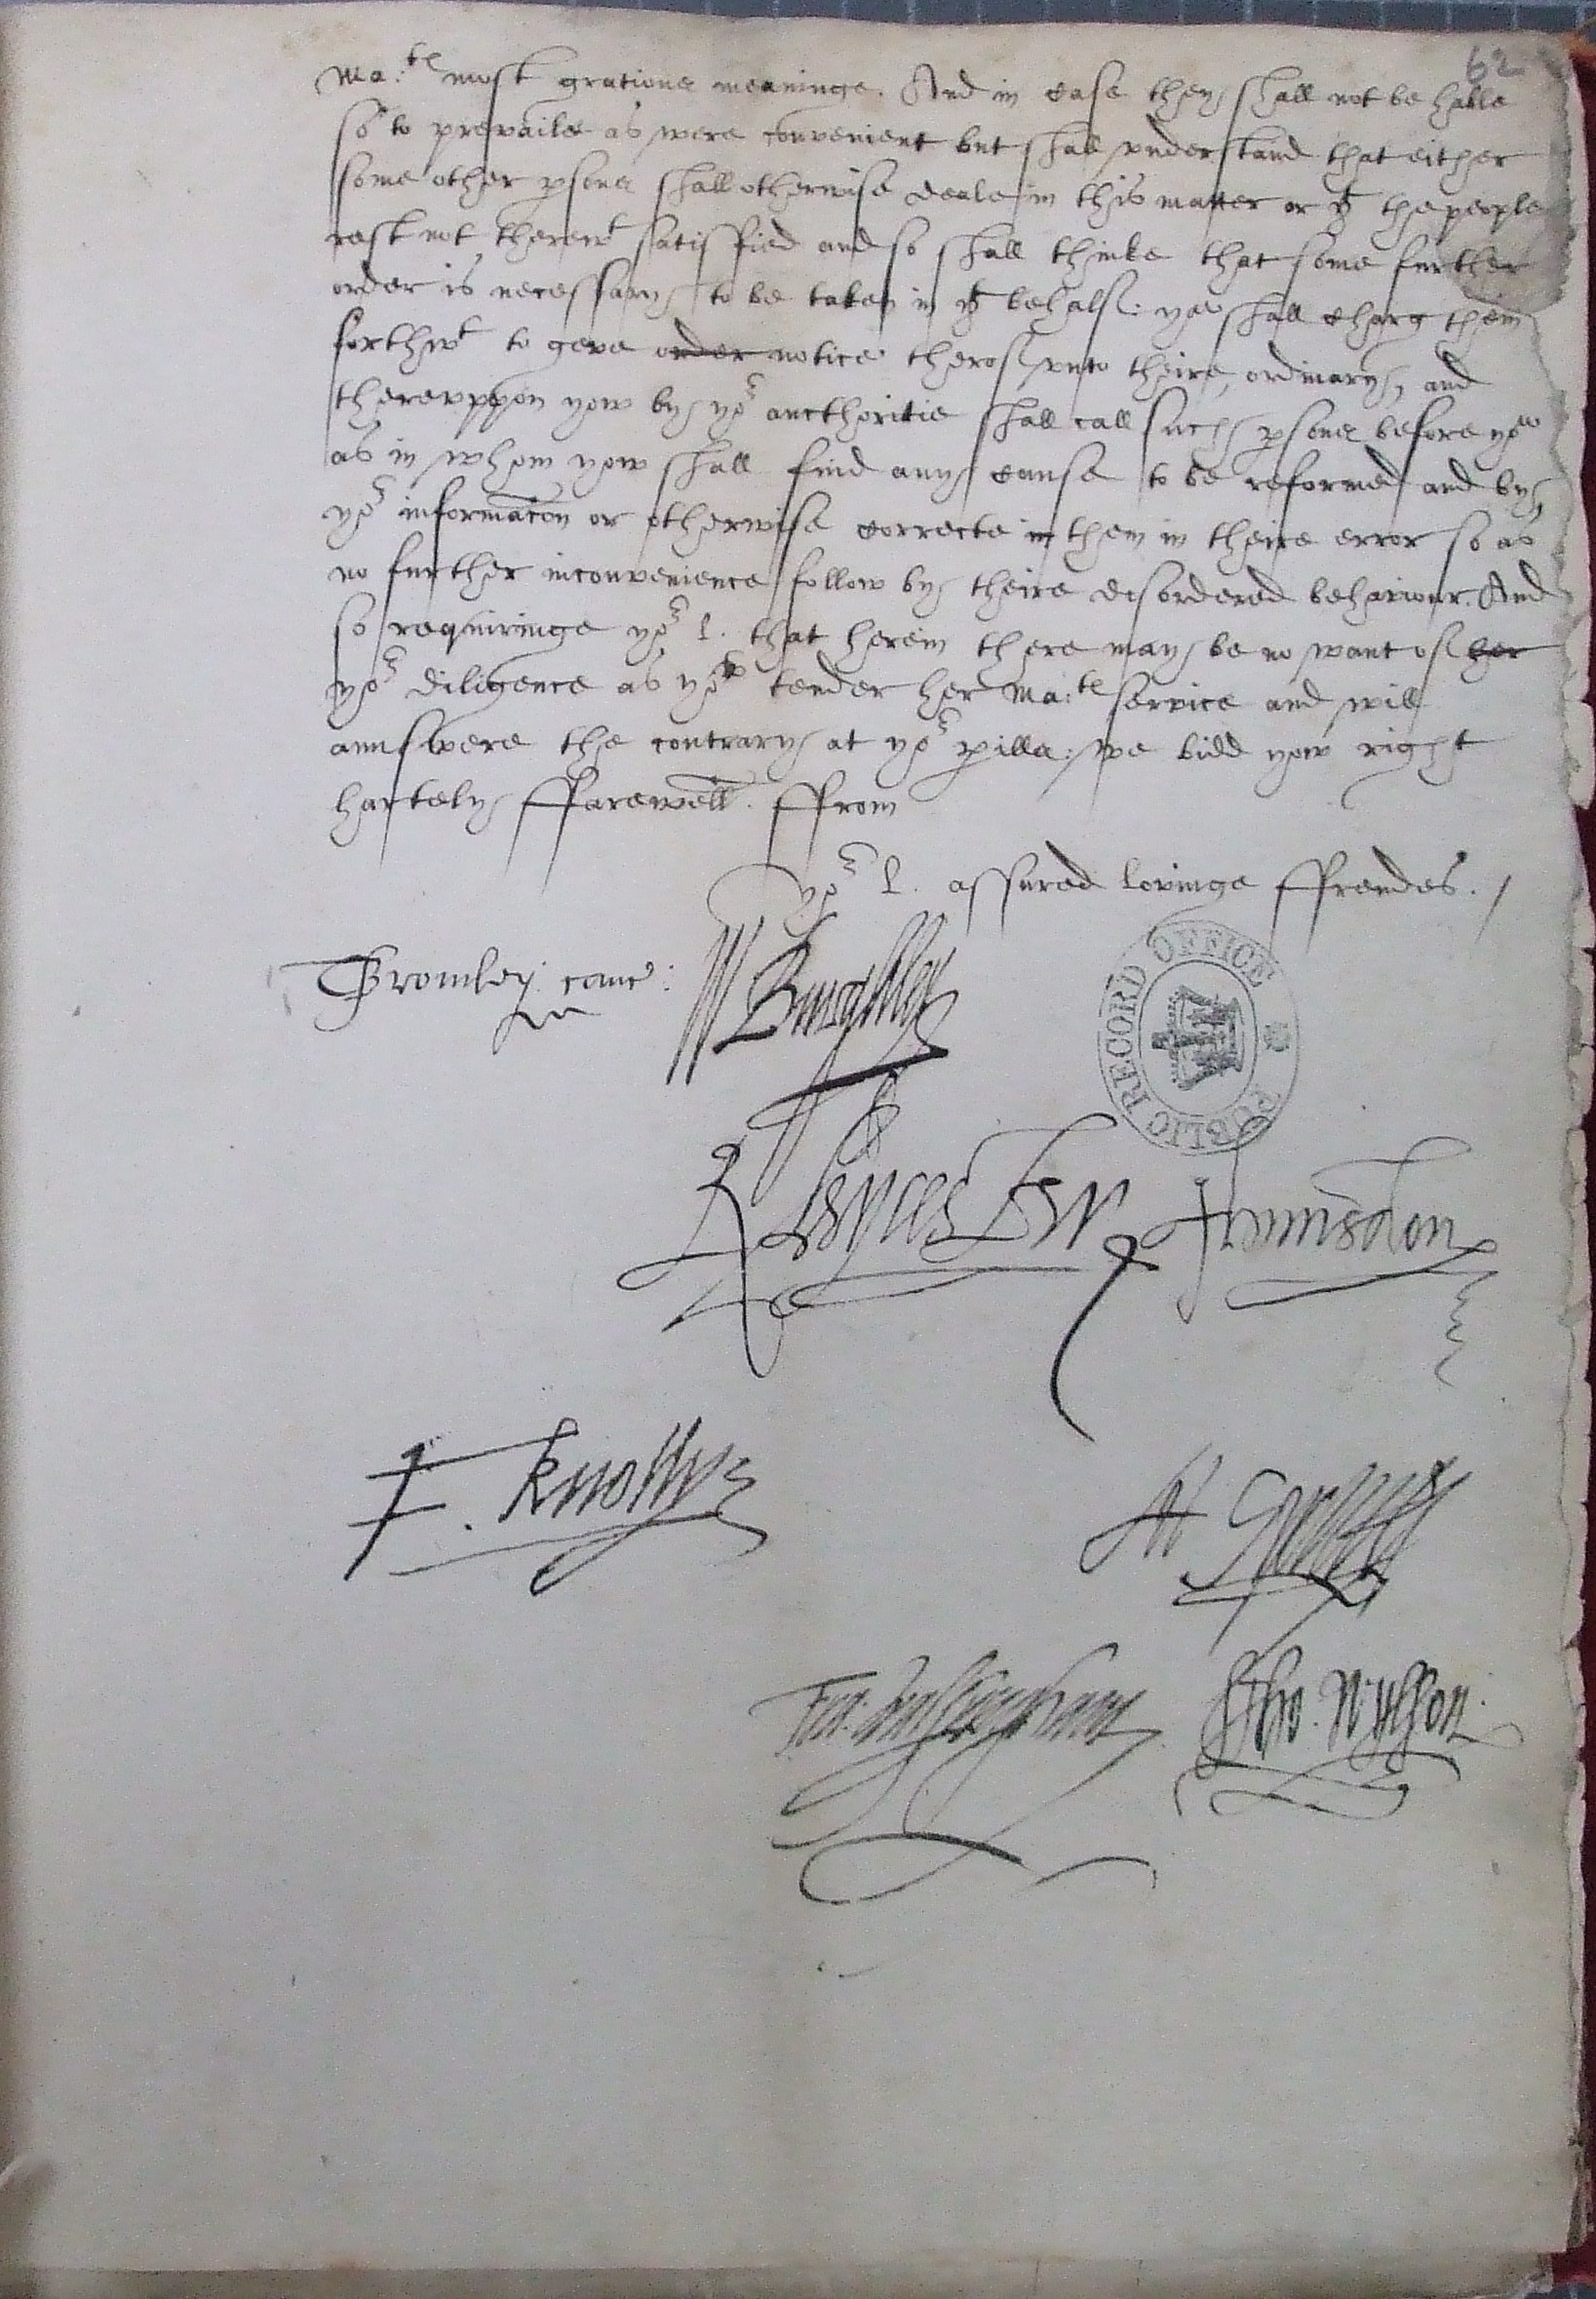 62
Ma:tie most gratious meaninge. And in case they shall not be hable
so to prevaile as were convenient but shall vnderstand that either
some other psones shall otherwise deale in this matter or yt the people
rest not therewt satisfied and so shall thinke that some further
order is necessary to be taken in yt behalf: yow shall charg them
forthwt to geve order notice therof vnto theire ordinary, and
therevppon yow by yor aucthoritie shall call such psones before yow
as in whom yow shall find any cause to be reformed and by
yor informacon or otherwise correcte in them in theire error so as
no further inconvenience follow by theire disordered behaviour. And
so requiringe yor l. that herein there may be no want of her
yor diligence as yow tender her Ma:tie service and will
aunswere the contrary at yor perille: we bidd yow right
hartely ffarewell. ffrom
yor l. assured lovinge ffrendes. /
Bromley: canc:
W Burghley
R Leycester Hunsdon
F. Knollys
Fra: Walsyngham Tho. Wylson.
PUBLIC RECORD OFFICE